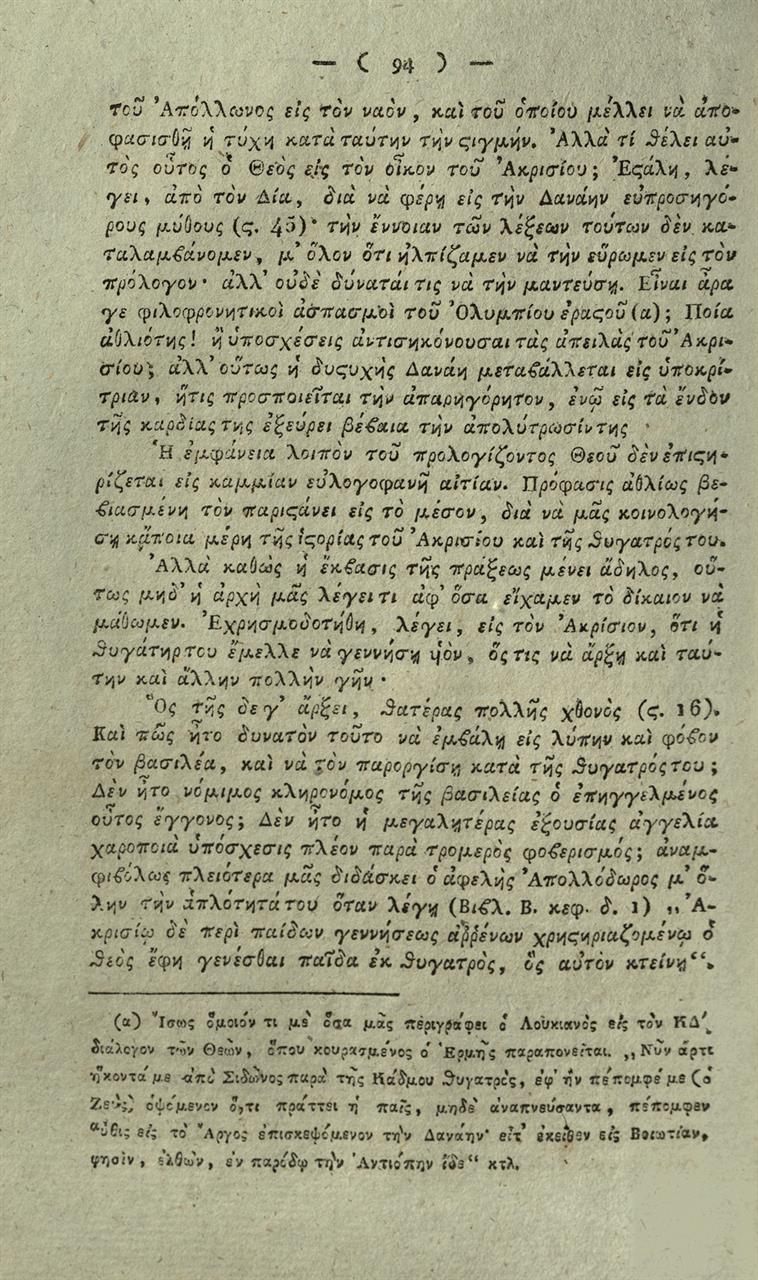 — ( 94 ) —
τοῦ Ἀπόλλωνος εἰς τὸν ναὸν, καὶ τοῦ ὁποίου μέλλει νὰ ἀπο-
φασισθῇ ἡ τύχη κατὰ ταύτην τὴν ϛιγμήν. Ἀλλὰ τί θέλει αὐ-
τὸς οὗτος ὁ Θεὸς εἰς τὸν οἶκον τοῦ Ἀκρισίου; Ἐϛάλη, λέ-
γει, ἀπὸ τὸν Δία, διὰ νὰ φέρῃ εἰς τὴν Δανάην εὐπροσηγό-
ρους μύθους (ϛ. 45)· τὴν ἔννοιαν τῶν λέξεων τούτων δὲν κα-
ταλαμβάνομεν, μ' ὅλον ὅτι ἠλπίζαμεν νὰ τὴν εὕρωμεν εἰς τὸν
πρόλογον· ἀλλ' οὐδὲ δύναταί τις νὰ τὴν μαντεύσῃ. Εἶναι ἆρα
γε φιλοφρονητικοὶ ἀσπασμοὶ τοῦ Ὀλυμπίου ἐραϛοῦ (α); Ποία
ἀθλιότης! ἢ ὑποσχέσεις ἀντισηκόνουσαι τὰς ἀπειλὰς τοῦ Ἀκρι-
σίου; ἀλλ' οὕτως ἡ δυϛυχὴς Δανάη μεταβάλλεται εἰς ὑποκρί-
τριαν, ἥτις προσποιεῖται τὴν ἀπαρηγόρητον, ἐνῷ εἰς τὰ ἔνδον
τῆς καρδίας της ἐξεύρει βέβαια τὴν ἀπολύτρωσίν της ·
Ἡ ἐμφάνεια λοιπὸν τοῦ προλογίζοντος Θεοῦ δὲν ἐπιϛη-
ρίζεται εἰς καμμίαν εὐλογοφανῆ αἰτίαν. Πρόφασις ἀθλίως βε-
βιασμένη τὸν παριϛάνει εἰς τὸ μέσον, διὰ νὰ μᾶς κοινολογή-
σῃ κᾄποια μέρη τῆς ἱϛορίας τοῦ Ἀκρισίου καὶ τῆς θυγατρός του.
Ἀλλὰ καθὼς ἡ ἔκβασις τῆς πράξεως μένει ἄδηλος, οὕ-
τως μηδ' ἡ ἀρχὴ μᾶς λέγει τι ἀφ' ὅσα εἴχαμεν τὸ δίκαιον νὰ
μάθωμεν. Ἐχρησμοδοτήθη, λέγει, εἰς τὸν Ἀκρίσιον, ὅτι ἡ
θυγάτηρ του ἔμελλε νὰ γεννήσῃ υἱὸν, ὅϛις νὰ ἄρξῃ καὶ ταύ-
την καὶ ἄλλην πολλὴν γῆν·
Ὃς τῆς δε γ' ἄρξει, θατέρας πολλῆς χθονὸς (ϛ. 16).
Καὶ πῶς ἦτο δυνατὸν τοῦτο νὰ ἐμβάλῃ εἰς λύπην καὶ φόβον
τὸν βασιλέα, καὶ νὰ τὸν παροργίσῃ κατὰ τῆς θυγατρός του;
Δὲν ἦτο νόμιμος κληρονόμος τῆς βασιλείας ὁ ἐπηγγελμένος
οὗτος ἔγγονος; Δὲν ἦτο ἡ μεγαλητέρας ἐξουσίας ἀγγελία
χαροποιὰ ὑπόσχεσις πλέον παρὰ τρομερὸς φοβερισμός; ἀναμ-
φιβόλως πλειότερα μᾶς διδάσκει ὁ ἀφελὴς Ἀπολλόδωρος μ' ὅ-
λην τὴν ἁπλότητά του ὅταν λέγῃ (Βιβλ. Β. κεφ. δ. 1) „Ἀ-
κρισίῳ δὲ περὶ παίδων γεννήσεως ἀῤῥένων χρηϛηριαζομένῳ ὁ
θεὸς ἔφη γενέσθαι παῖδα ἐκ θυγατρὸς, ὃς αὐτὸν κτείνῃ“.
(α) Ἴσως ὅμοιόν τι μὲ ὅσα μᾶς περιγράφει ὁ Λουκιανὸς εἰς τὸν ΚΔ΄
διάλογον τῶν Θεῶν, ὅπου κουρασμένος ὁ Ἑρμῆς παραπονεῖται. „Νῦν ἄρτι
ἥκοντά με ἀπὸ Σιδῶνος παρὰ τῆς Κάδμου θυγατρὸς, ἐφ' ἣν πέπομφέ με (ὁ
Ζεὺς) ὀψόμενον ὅ,τι πράττει ἡ παῖς, μηδὲ ἀναπνεύσαντα, πέπομφεν
αὖθις εἰς τὸ Ἄργος ἐπισκεψόμενον τὴν Δανάην· εἶτ' ἐκεῖθεν εἰς Βοιωτίαν,
φησὶν, ἐλθὼν, ἐν παρόδῳ τὴν Ἀντιόπην ἴδε“ κτλ.